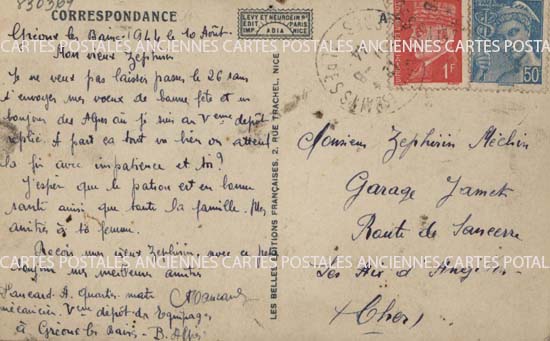 830369
CORRESPONDANCE
Gréoux les Bains 1944 le 10 Août
Mon vieux Zephirin
Je ne veux pas laisser passer le 26 sans
t'envoyer mes voeux de bonne fête et un
bonjour des Alpes où je suis au Vème depôt
replié. A part ça tout va bien on attend
la fin avec impatience et toi?
J'espère que le patron est en bonne
santé ainsi que toute la famille. Mes
amitiés à ta femme.
Reçois mon vieux Zephirin avec ce
bonjour mes meilleurs amitiés
A. quartier maitre
mécanicien Vème dépôt des Equipages
à Gréoux les Bains - B. Alpes
LEVY ET NEURDEIN Rs
EDIT PARIS
IMP ADIA NICE
LES BELLES EDITIONS FRANÇAISES, 2, RUE TRACHEL, NICE
1F
50
Monsieur Zephirin Méchin
Garage Jamet
Route de Sancerre
Les Aix d'Angillon
Cher
ANCIENNES CARTES POSTALES ANCIENNES CARTES POSTALES ANCIENNES CARTES POSTALES